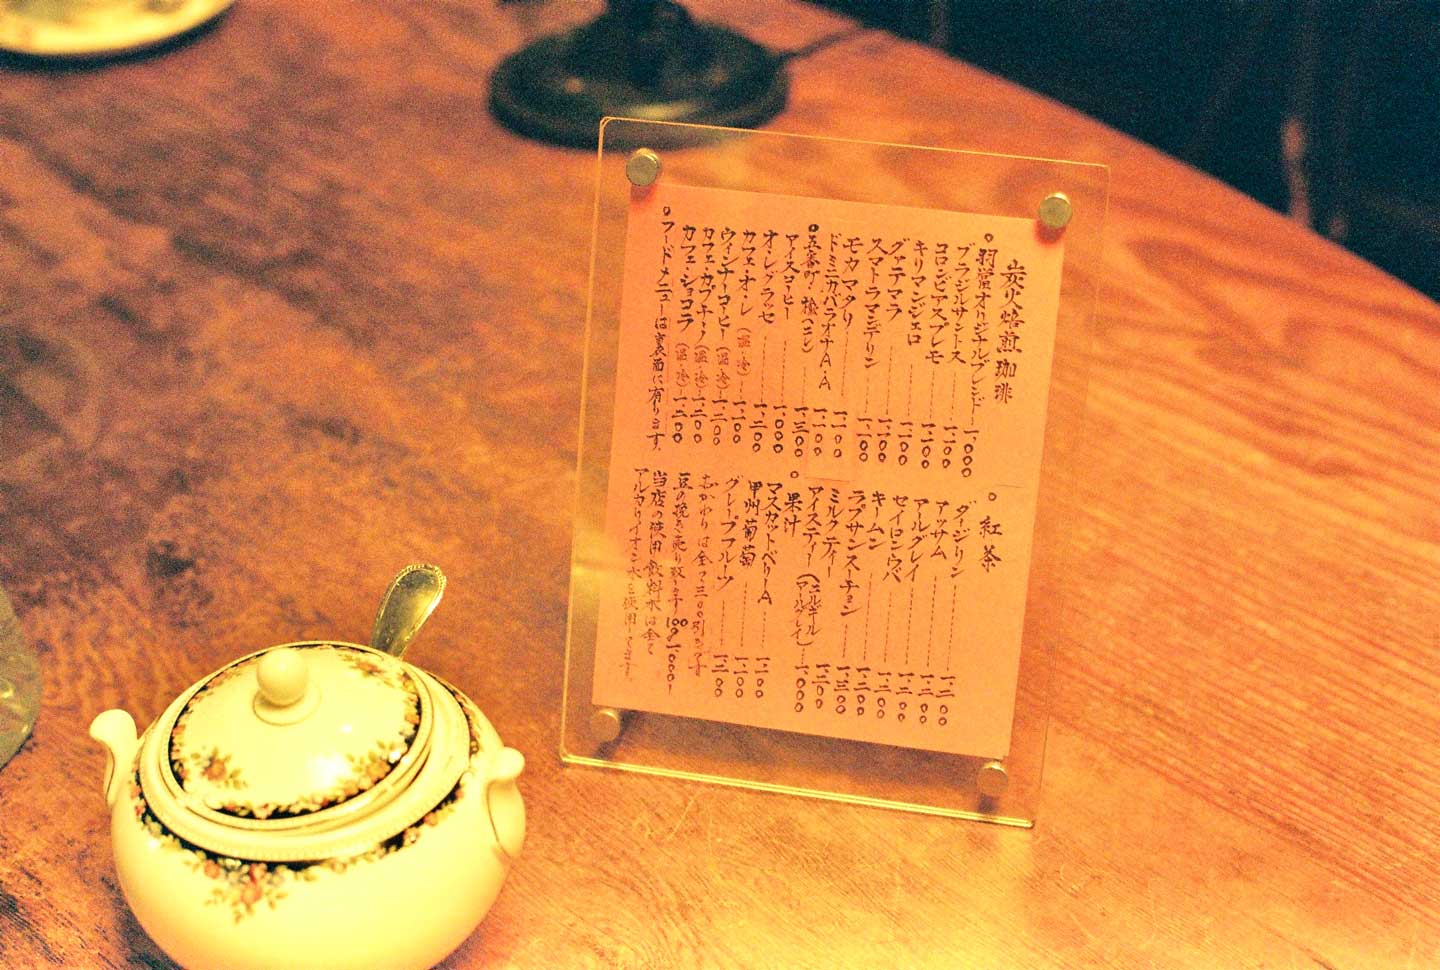 炭火焙煎珈琲
羽當オリジナルブレンド 一、〇〇〇
ブラジルサントス 一、一〇〇
コロンビアスプレモ 一、一〇〇
キリマンジェロ 一、一〇〇
グァテマラ 一、一〇〇
スマトラマンデリン 一、一〇〇
モカマタリ 一、一〇〇
ドミニカバラオナAA 一、一〇〇
アイスコーヒー 一、〇〇〇
オ・レ・グラッセ 一、二〇〇
カフェ・オ・レ (温・冷) 一、一〇〇
ウィンナーコーヒー (温・冷) 一、二〇〇
カフェ・カプチーノ (温・冷) 一、二〇〇
カフェ・ショコラ (温・冷) 一、二〇〇
フードメニューは裏面に有ります。
紅茶
ダージリン 一、二〇〇
アッサム 一、二〇〇
アールグレイ 一、二〇〇
セイロンウバ 一、二〇〇
キームン 一、二〇〇
ラプサンスーチョン 一、二〇〇
ミルクティー
アイスティー (アールグレイ)
果汁
マスカットベリーA 一、一〇〇
甲州葡萄 一、一〇〇
グレープフルーツ 一、一〇〇
豆の挽き売り致します 100g
当店の使用飲料水は全て
アルカリイオン水を使用